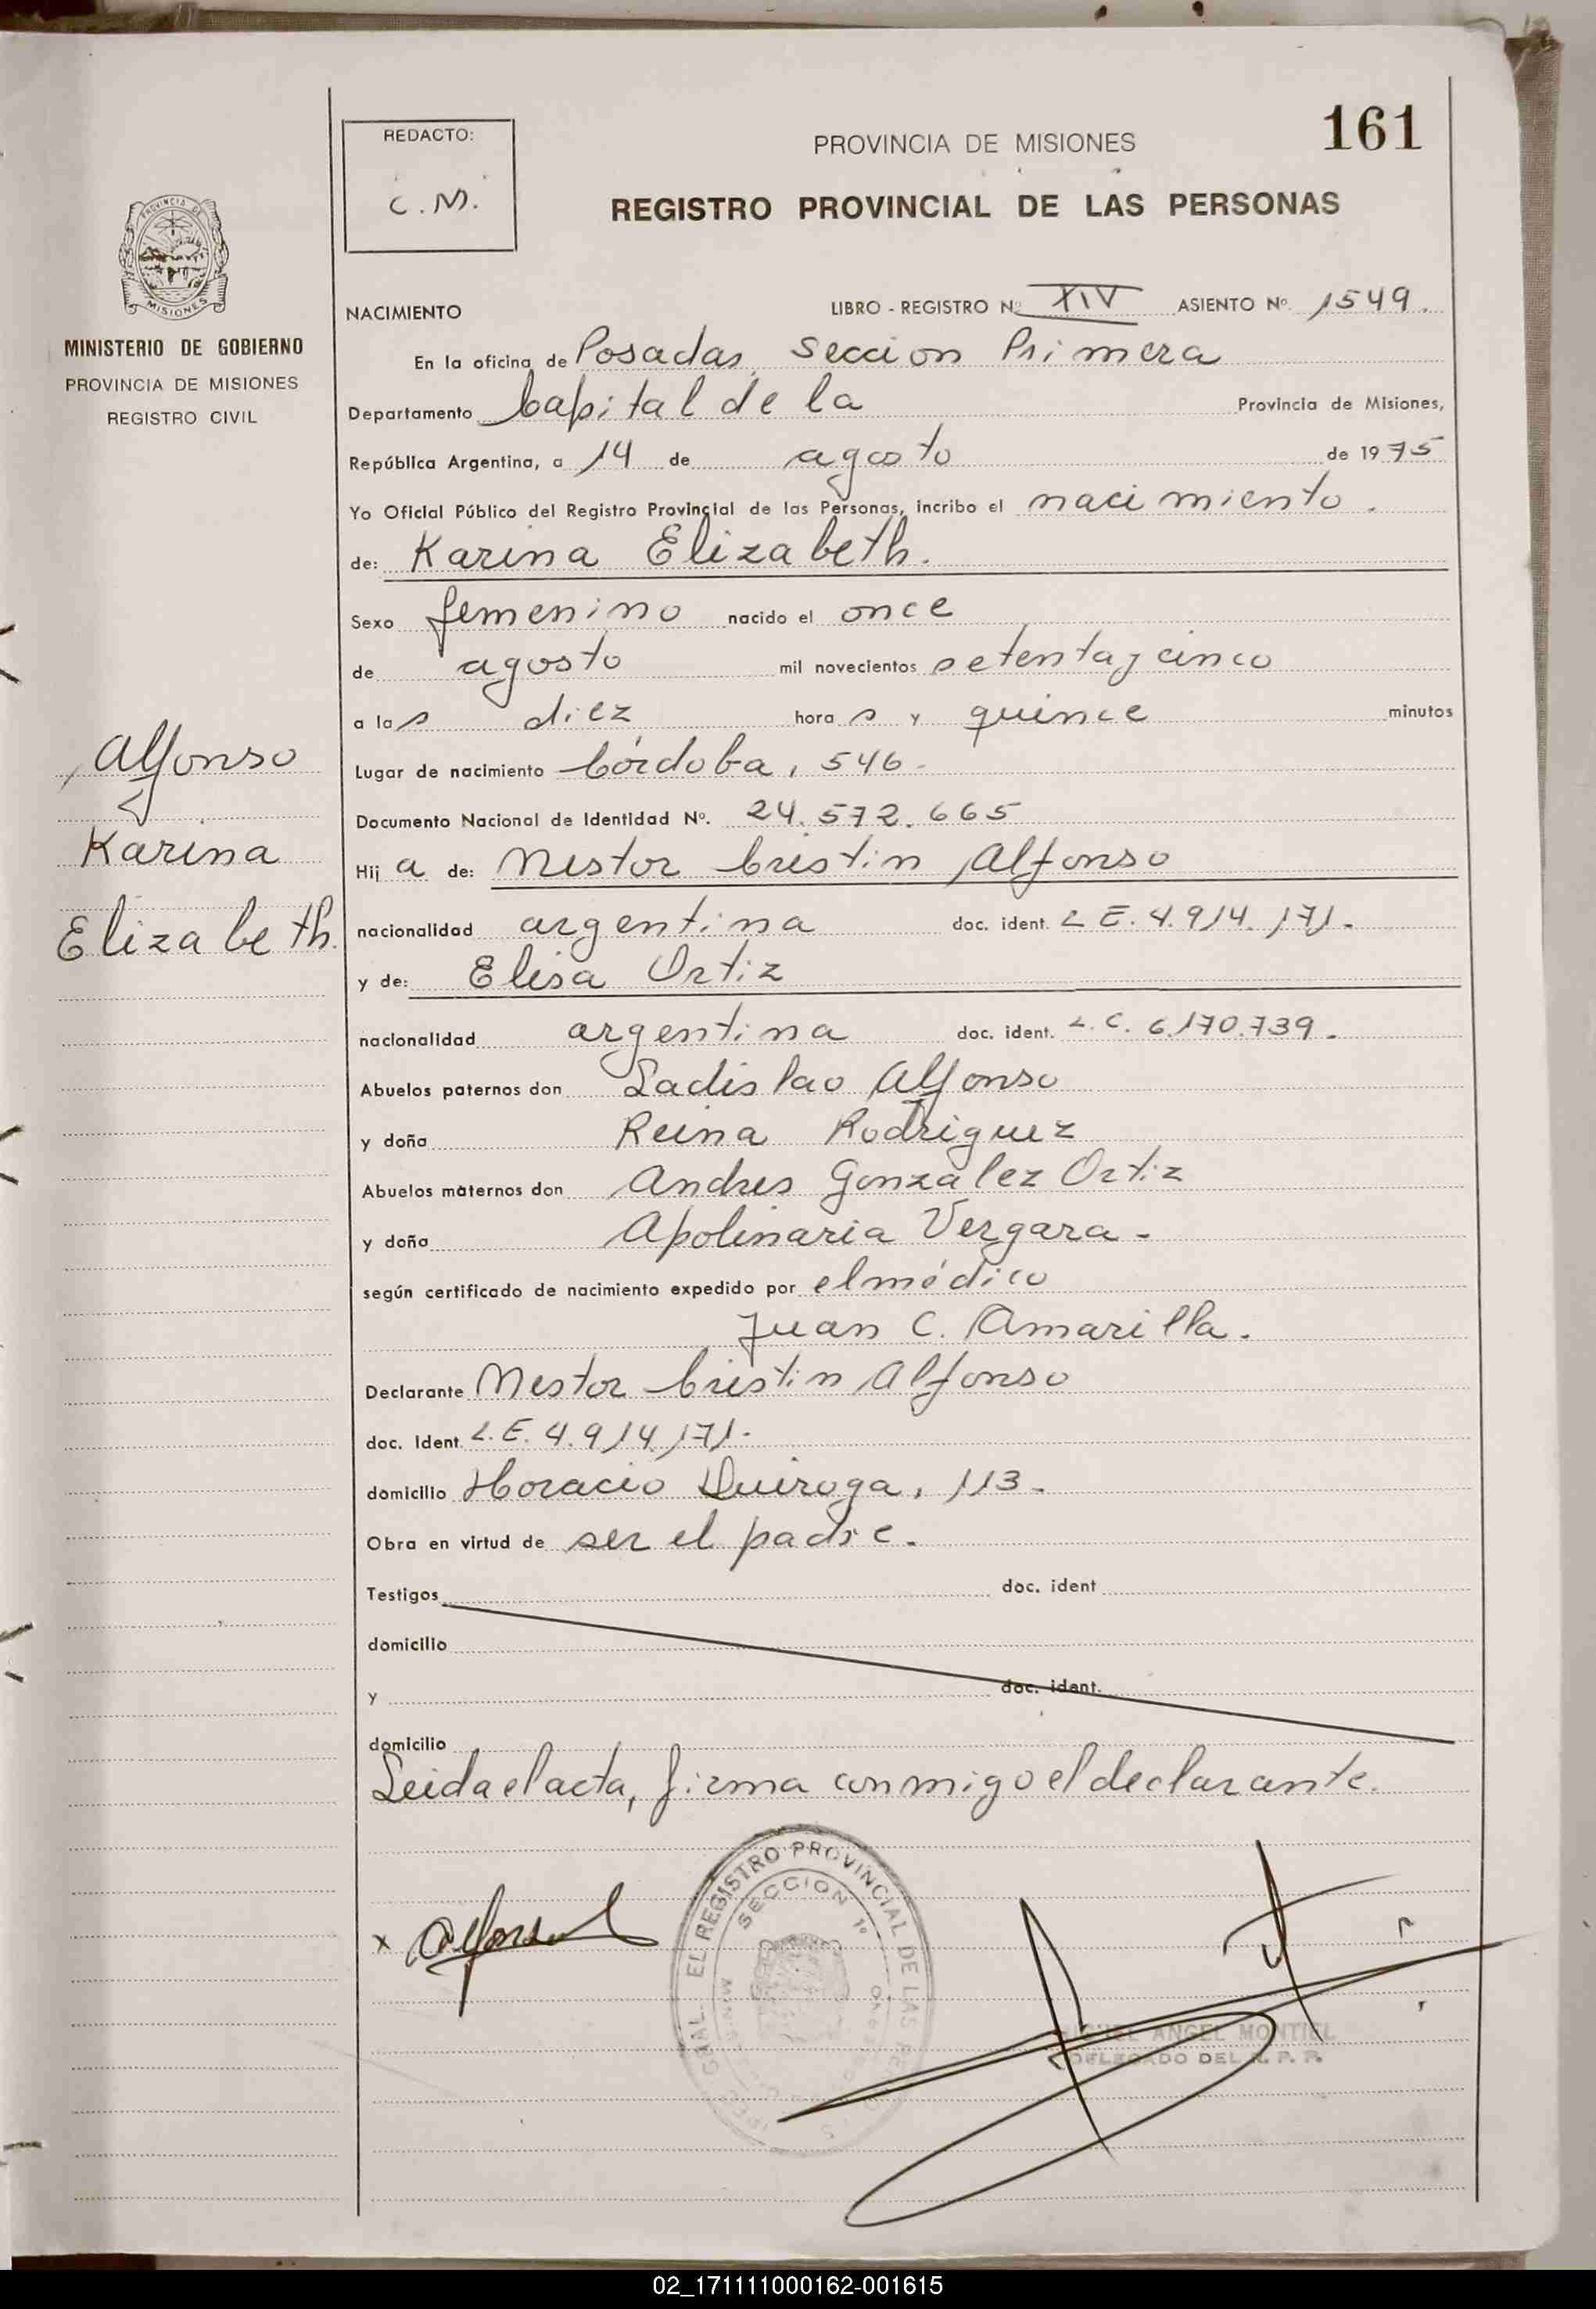 161
REDACTO:
C.M.
PROVINCIA DE MISIONES
REGISTRO PROVINCIAL DE LAS PERSONAS
PROVINCIA DE
MISIONES
MINISTERIO DE GOBIERNO
PROVINCIA DE MISIONES
REGISTRO CIVIL
NACIMIENTO LIBRO - REGISTRO Nº XIV ASIENTO Nº. 1549.
En la oficina de Posadas, Seccion Primera
Departamento Capital de la Provincia de Misiones,
República Argentina, a 14 de agosto de 1975
Yo Oficial Público del Registro Provincial de las Personas, incribo el nacimiento.
de: Karina Elizabeth.
Sexo femenino nacido el once
de agosto mil novecientos setenta y cinco
a las diez horas y quince minutos
Lugar de nacimiento Córdoba, 546.
Documento Nacional de Identidad Nº. 24.572.665
Hija de: Nestor Cristin Alfonso
nacionalidad argentina doc. ident. L E. 4.914.171.
y de: Elisa Ortiz
nacionalidad argentina doc. ident. L.C. 6.170.739.
Abuelos paternos don Ladislao Alfonso
y doña Reina Rodriguez
Abuelos maternos don Andres Gonzalez Ortiz
y doña Apolinaria Vergara.
según certificado de nacimiento expedido por el médico
Juan C. Amarilla.
Declarante Nestor Cristin Alfonso
doc. Ident. L.E. 4.914.171.
domicilio Horacio Quiroga, 113.
Obra en virtud de ser el padre.
Testigos doc. ident
domicilio
y doc. ident.
domicilio
Leida el acta, firma conmigo el declarante.
Alfonso
Karina
Elizabeth.
x Alfonso
EL REGISTRO PROVINCIAL DE LAS
SECCION 1º
MIGUEL ANGEL MONTIEL
DELEGADO DEL R. P. P.
02_171111000162-001615